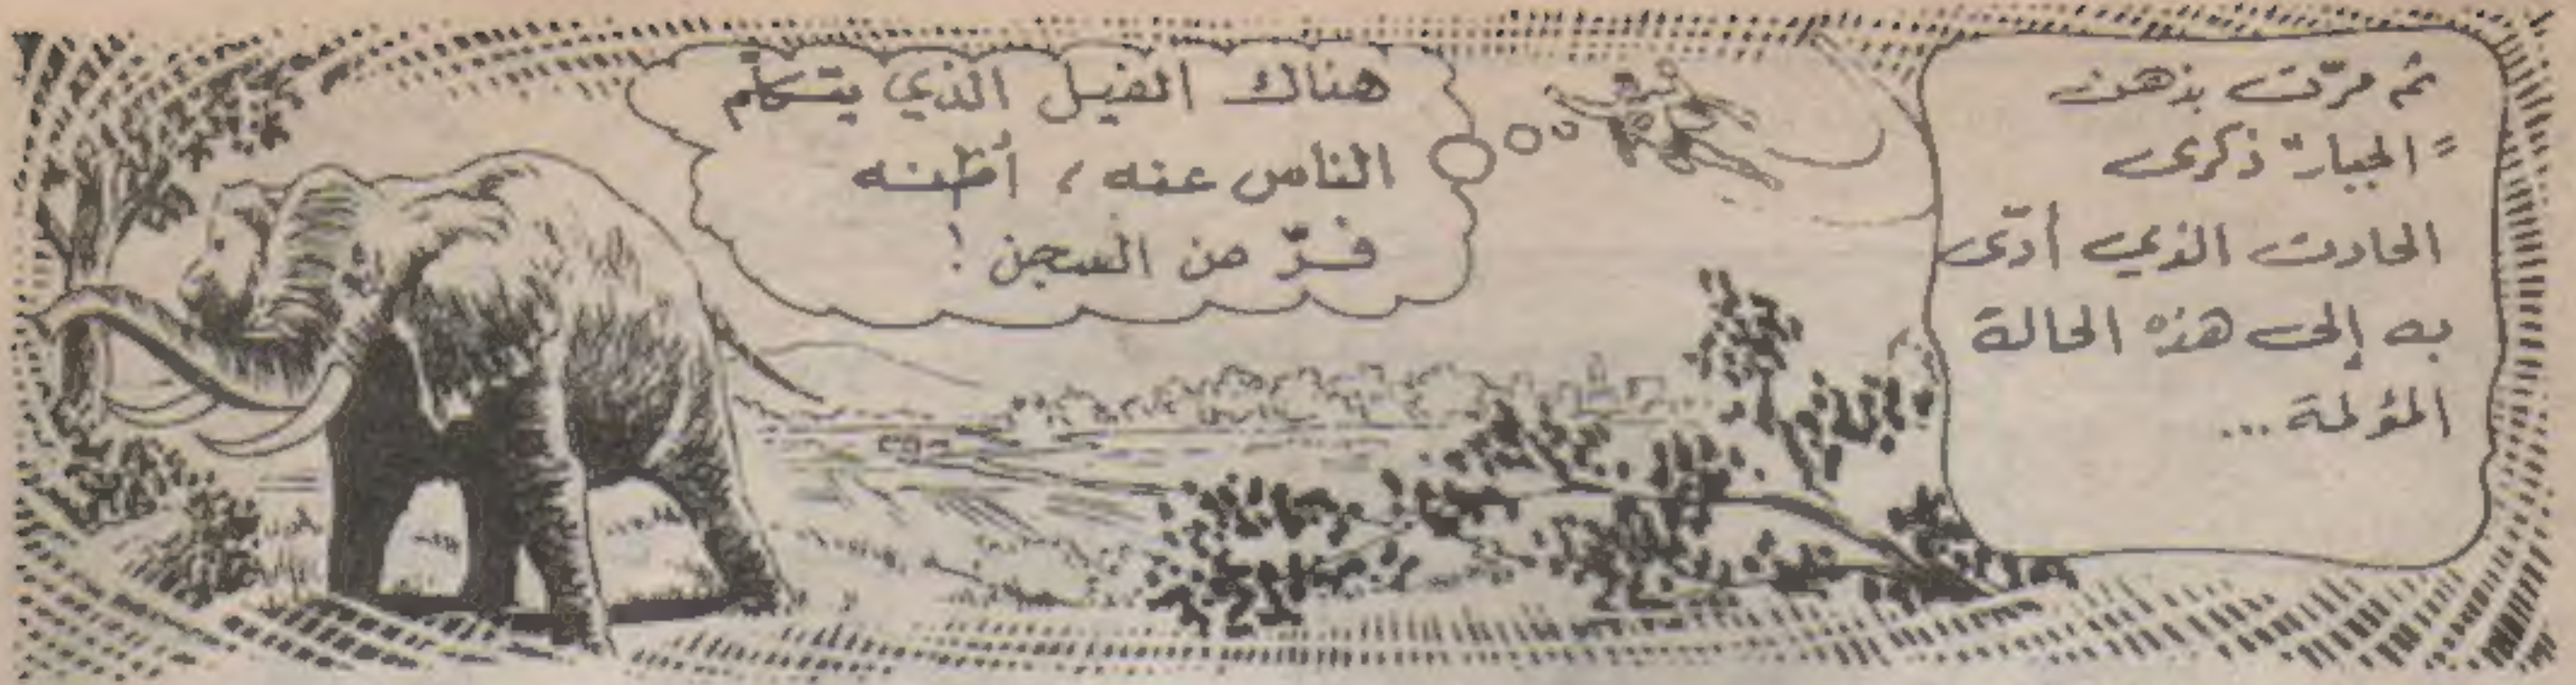 ثم مرّت بذهن
"الجبار" ذكرى
الحادث الذي أدّى
به إلى هذه الحالة
المؤلمة...
هناك الفيل الذي يتكلّم
الناس عنه، أظنه
فرّ من السجن!